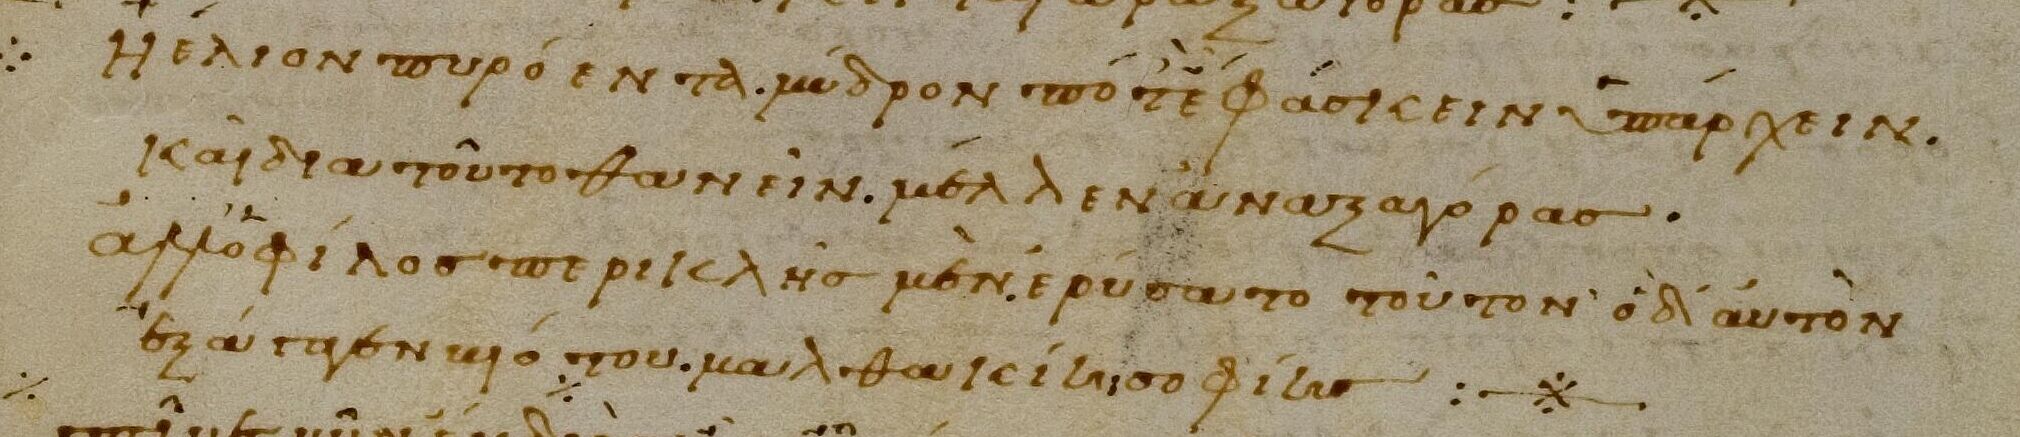 Ἠέλιον πυρόεντα. μύδρον ποτὲ φάσκειν ὑπάρχειν.
καὶ διὰ τοῦτο θανεῖν. μέλλεν ἀναξαγόρας.
ἀλλ' ὁ φίλος περικλῆς μὲν ἐρύσατο τοῦτον ὁ δ' αὑτὸν
ἐξάγαγεν βιότου. μαλθακίῃ σοφίης